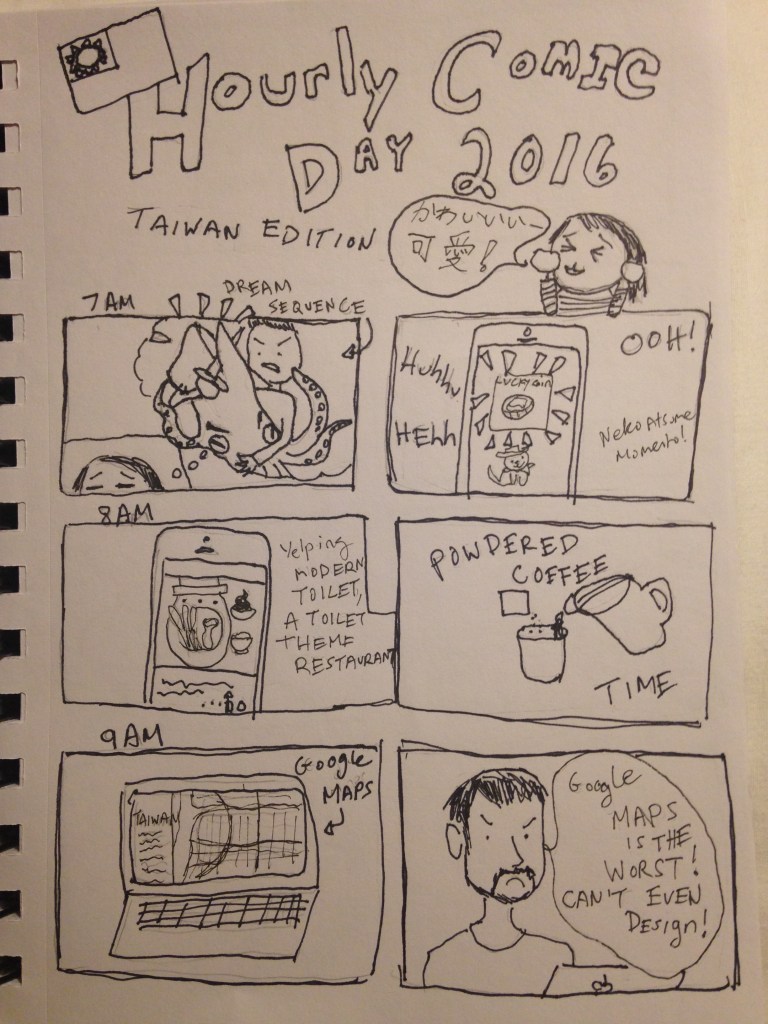 Hourly Comic
Day 2016
Taiwan Edition
かわいいいー
可愛!
7AM
Dream
Sequence
Huhhu
Hehh
Lucky Coin
OOH!
Neko Atsume
Momento!
8AM
Yelping
Modern
Toilet,
A Toilet
Theme
Restaurant
Powdered
Coffee
Time
9AM
Google
Maps
Taiwan
Google
Maps
is the
worst!
Can't even
design!